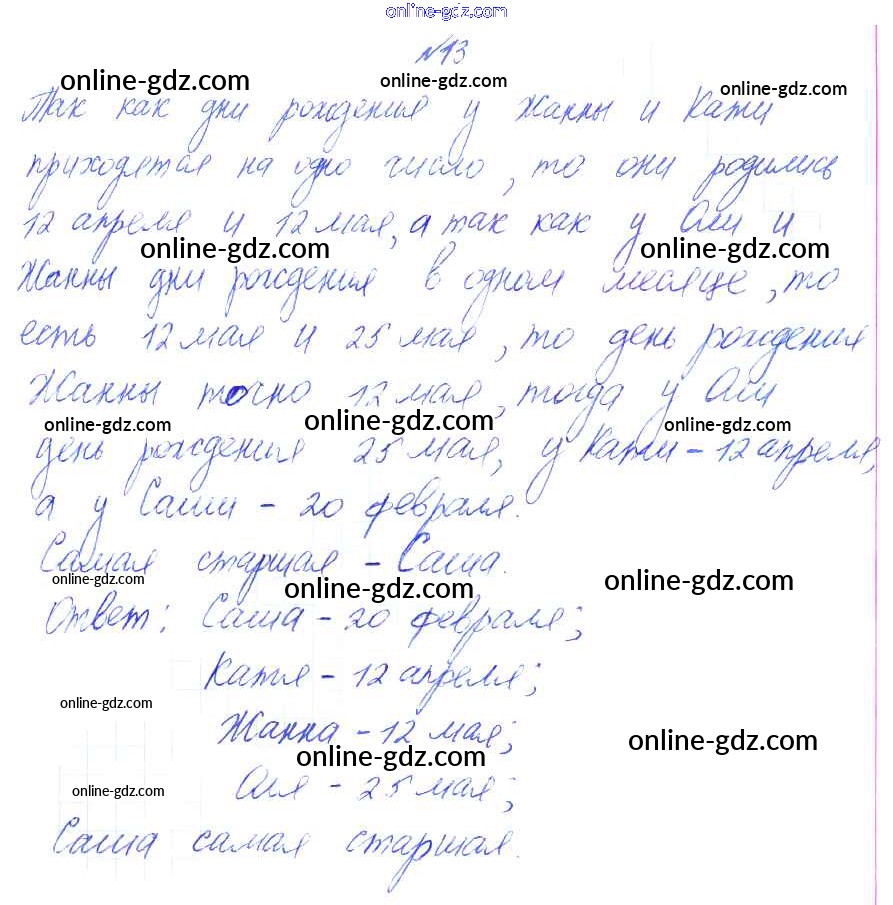 online-gdz.com
№13
online-gdz.com online-gdz.com online-gdz.com
Так как дни рождения у Жанны и Кати
приходятся на одно число, то они родились
12 апреля и 12 мая, а так как у Оли и
online-gdz.com online-gdz.com
Жанны дни рождения в одном месяце, то
есть 12 мая и 25 мая, то день рождения
Жанны точно 12 мая, тогда у Оли
online-gdz.com online-gdz.com online-gdz.com
день рождения 25 мая, у Кати - 12 апреля,
а у Саши - 20 февраля.
Самая старшая - Саша.
online-gdz.com online-gdz.com online-gdz.com
Ответ: Саша - 20 февраля;
Катя - 12 апреля;
online-gdz.com
Жанна - 12 мая;
online-gdz.com online-gdz.com
Оля - 25 мая;
online-gdz.com
Саша самая старшая.